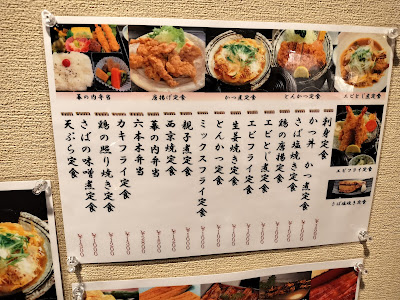 幕の内弁当
唐揚げ定食
かつ煮定食
とんかつ定食
エビとじ煮定食
エビフライ定食
さば塩焼き定食
刺身定食
かつ丼 かつ煮定食
さば塩焼き定食
鶏の唐揚定食
エビとじ煮定食
エビフライ定食
生姜焼き定食
とんかつ定食
ミックスフライ定食
親子煮定食
西京焼定食
幕の内弁当
六本木弁当
カキフライ定食
鶏の照り焼き定食
さばの味噌煮定食
天ぷら定食